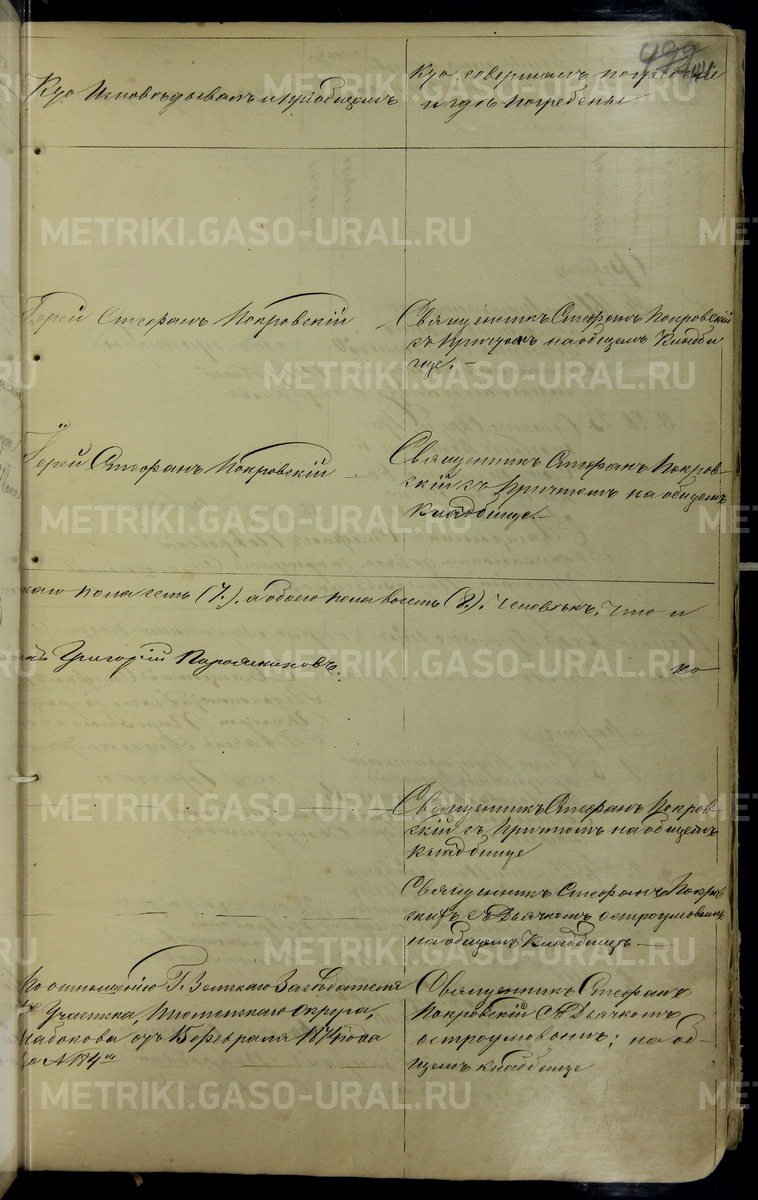 499
Кто исповѣдывалъ и пріобщалъ
Кто совершалъ погребеніе
и гдѣ погребены
Іерей Стефанъ Покровскій
Священникъ Стефанъ Покровскій
съ причтомъ на общемъ кладби
ще. —
Іерей Стефанъ Покровскій —
Священникъ Стефанъ Покров-
скій съ причтомъ на общемъ
кладбище. —
пола семь (7.), а обоего пола восемь (8.). человѣкъ, что и
Григорій
по
Священникъ Стефанъ Покров
скій съ причтомъ на общемъ
кладбище
Священникъ Стефанъ Покров
скій съ Дьячкомъ Остроумовымъ
на общемъ кладбищѣ —
По отношенію Г. Земскаго Засѣдателя
Участка, Тюменскаго округа,
отъ 15 февраля 1874 года
за № 184
Священникъ Стефанъ
Покровскій съ Дьячкомъ
Остроумовымъ; на об-
щемъ кладбище
METRIKI.GASO-URAL.RU